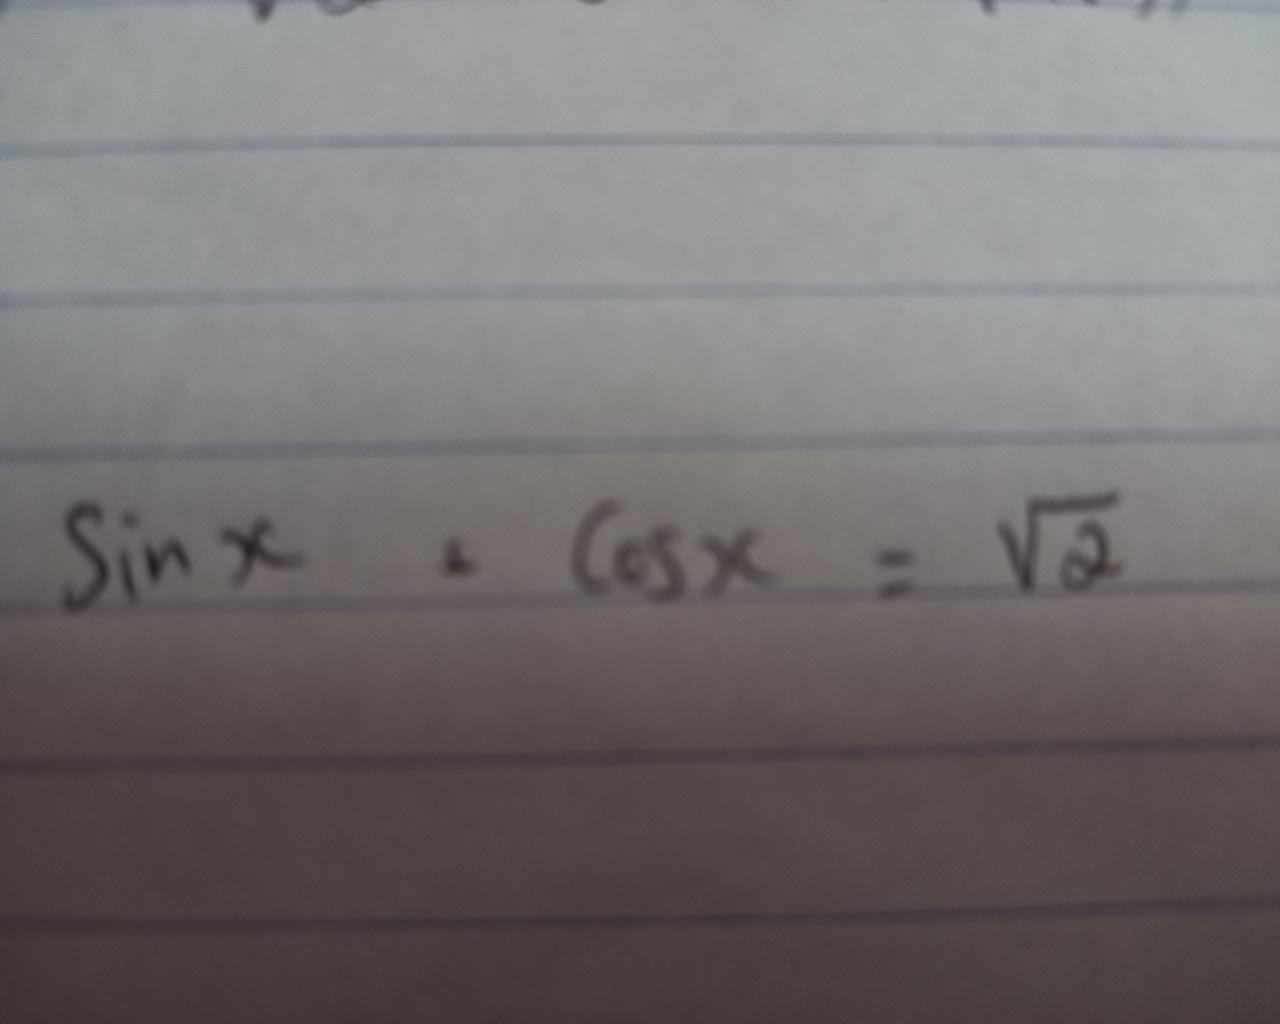 Sin x . Cos x = √2